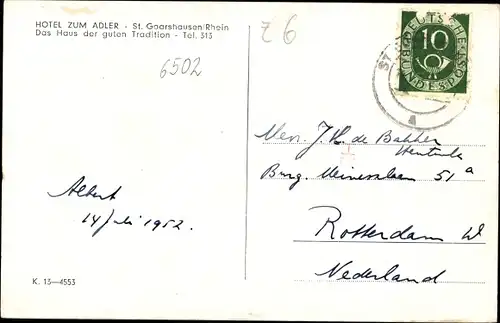 HOTEL ZUM ADLER - St. Goarshausen/Rhein
Das Haus der guten Tradition - Tel. 313
6502
Z 6
DEUTSCHE
10
BUNDESPOST
a
Mevr. J. H. de Bakker
Burg. 51ᵃ
Rotterdam W
Nederland
Albert
14 Juli 1952.
K. 13-4553